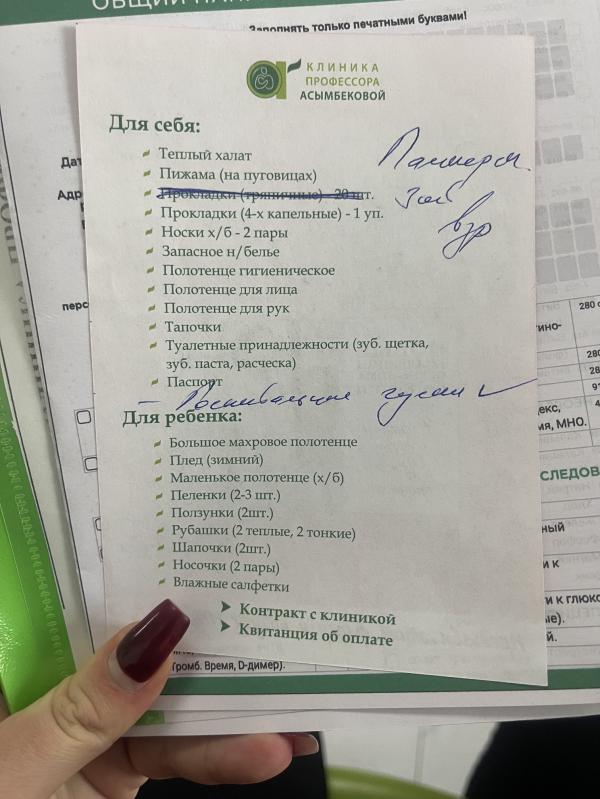 Заполнять только печатными буквами!
КЛИНИКА
ПРОФЕССОРА
АСЫМБЕКОВОЙ
Для себя:
Теплый халат
Пижама (на пуговицах)
Прокладки (тряпичные) - 20 шт.
Прокладки (4-х капельные) - 1 уп.
Носки х/б - 2 пары
Запасное н/белье
Полотенце гигиеническое
Полотенце для лица
Полотенце для рук
Тапочки
Туалетные принадлежности (зуб. щетка,
зуб. паста, расческа)
Паспорт
Для ребенка:
Большое махровое полотенце
Плед (зимний)
Маленькое полотенце (х/б)
Пеленки (2-3 шт.)
Ползунки (2шт.)
Рубашки (2 теплые, 2 тонкие)
Шапочки (2шт.)
Носочки (2 пары)
Влажные салфетки
➤ Контракт с клиникой
➤ Квитанция об оплате
(тромб. Время, D-димер).